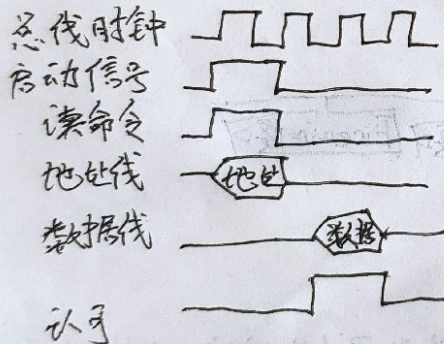 总线时钟
启动信号
读命令
地址线
地址
数据线
数据
认可